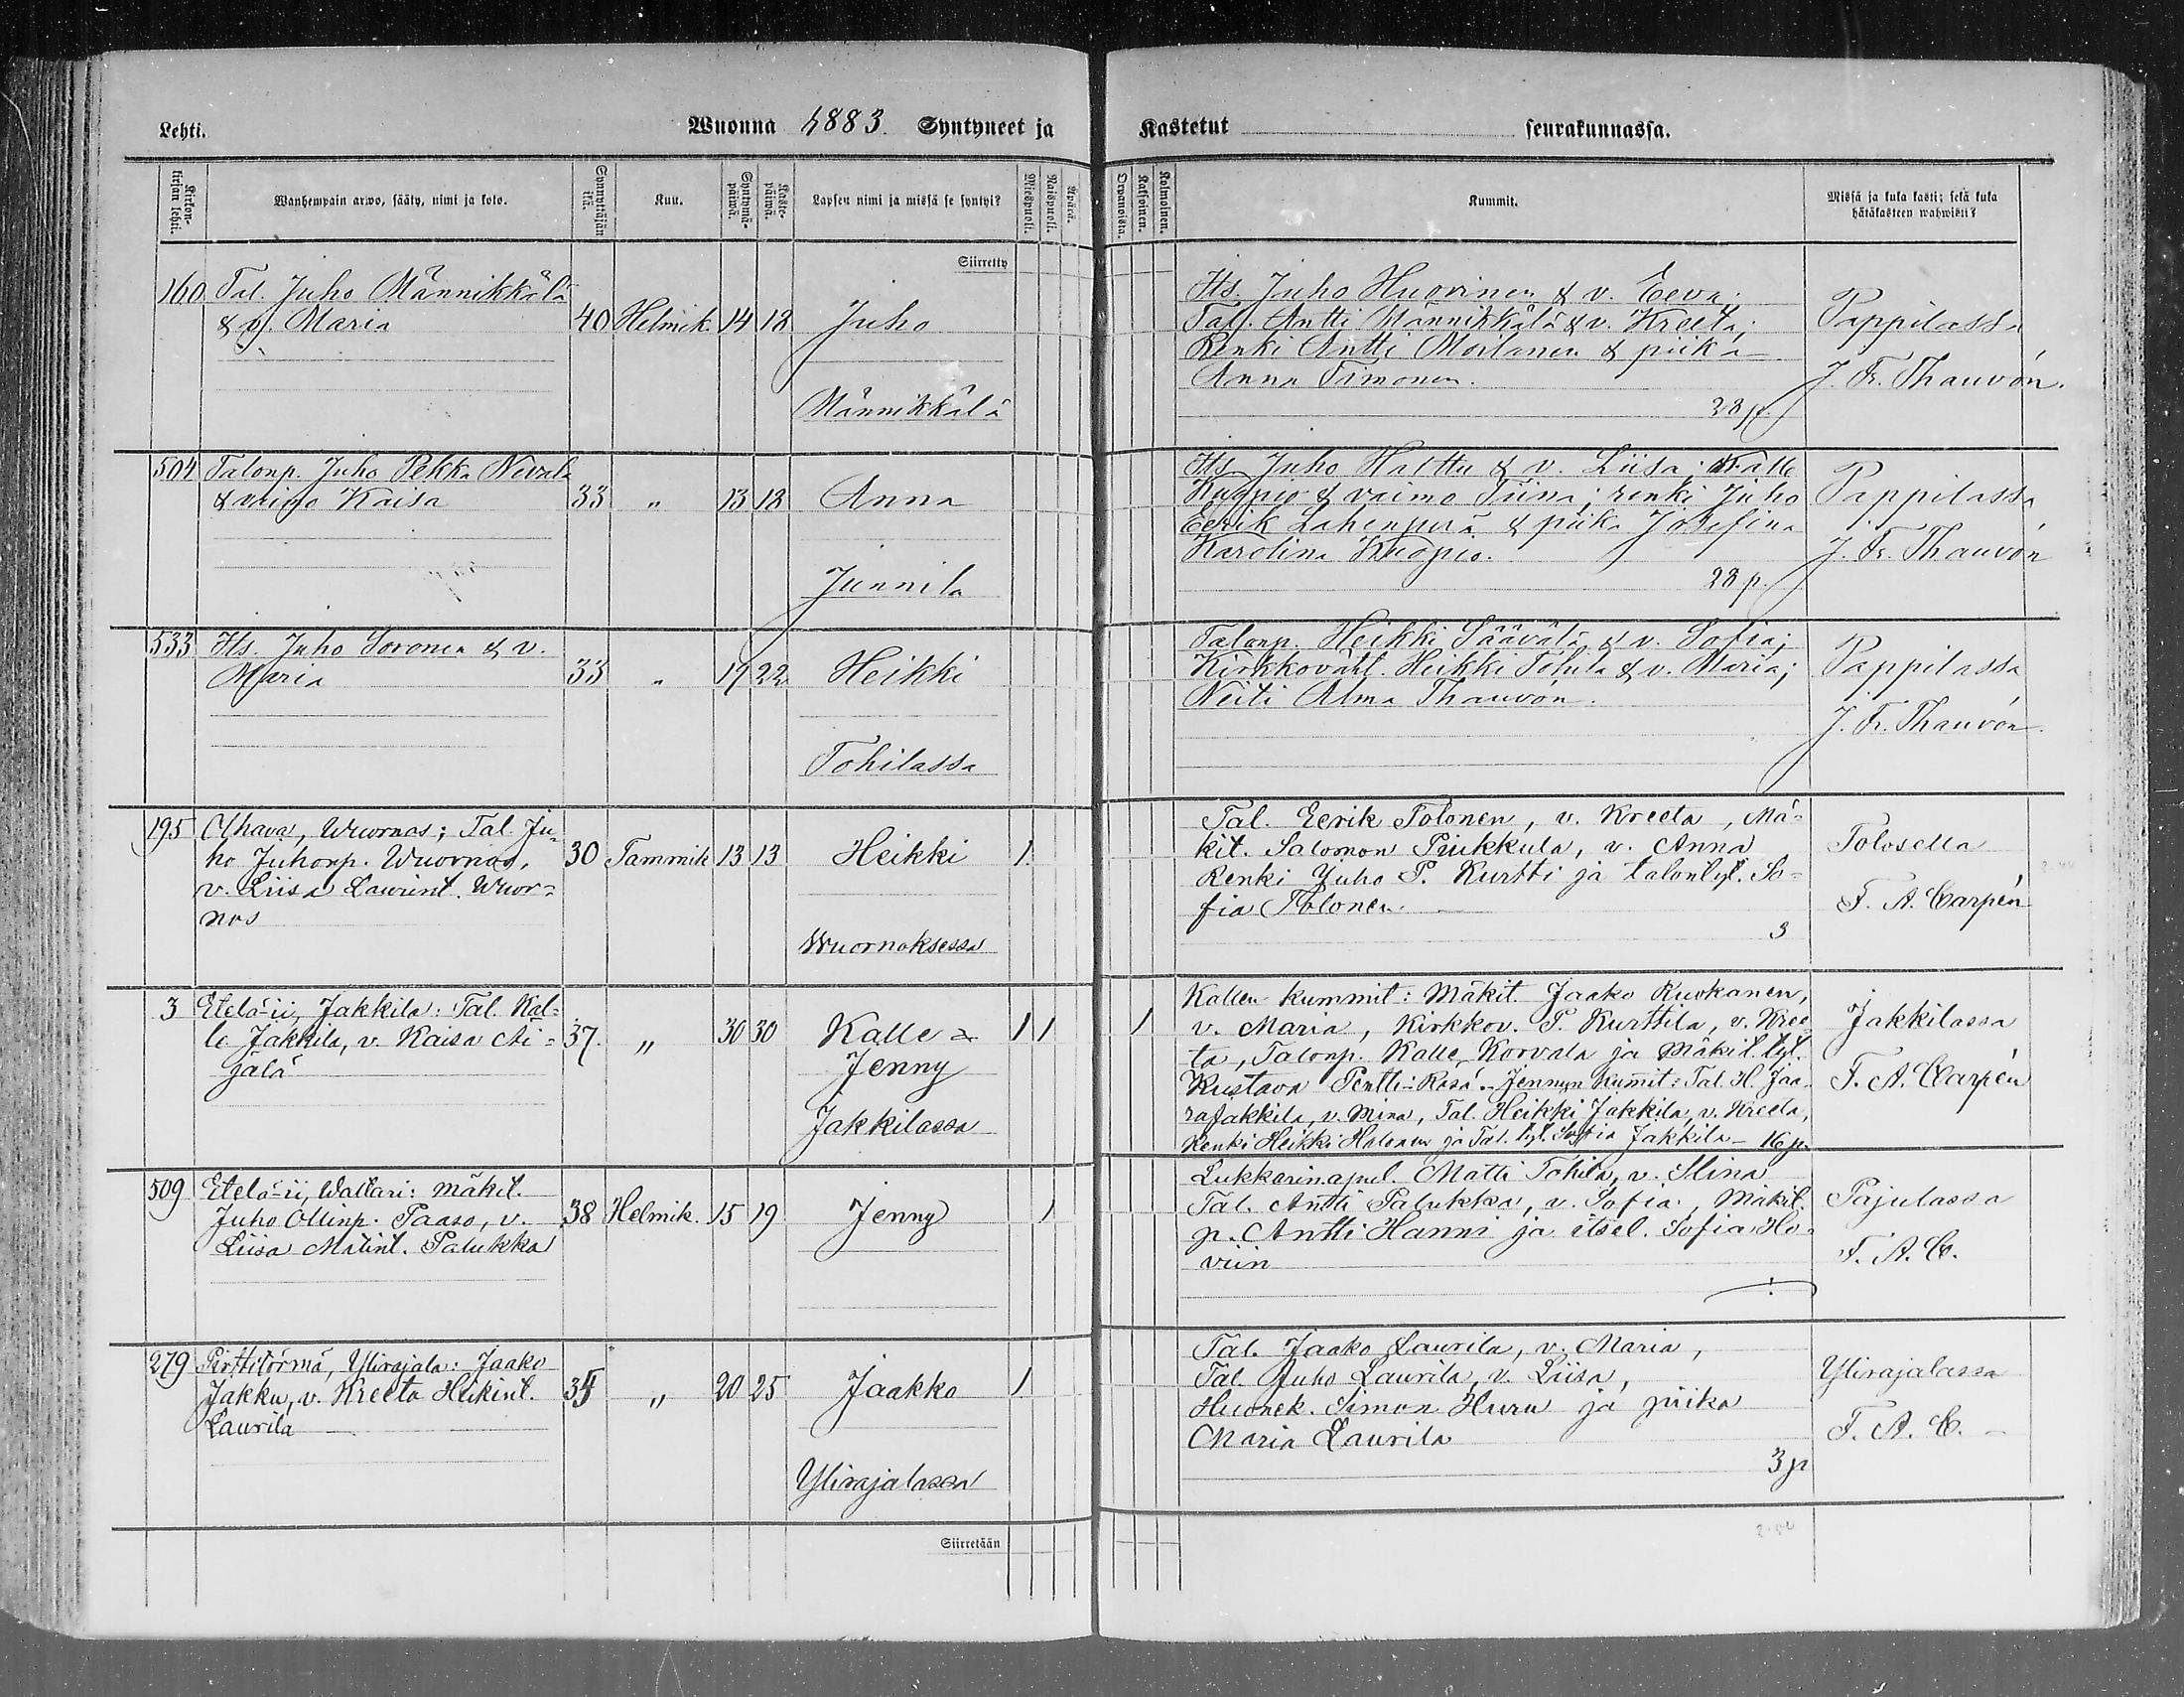 Lehti.
Wuonna 1883. Syntyneet ja
Kastetut seurakunnassa.
Kirkon-
kirjan lehti.
Wanhempain arwo, sääty, nimi ja koto.
Synnyttäjän
ikä.
Kuu.
Syntymä-
päiwä.
Kaste-
päiwä.
Lapsen nimi ja missä se syntyi?
Miespuoli.
Naispuoli.
Kummit.
Missä ja kuka kasti; sekä kuka
hätäkasteen wahwisti?
Kaksoinen.
Kolmoinen.
Siirretty
160 Tal. Juho Männikkälä
& v. Maria 40 Helmik. 14 18 Juho
Männikkälä
Its. Juho Huovinen & v. Eeva;
Tal. Antti Männikkälä & v. Kreeta;
Renki Antti Moilanen & piika
Anna Timonen.
28 p.
Pappilassa
J. Fr. Thauvón.
504 Talonp. Juho Pekka Nevala
& vaimo Kaisa 33 " 13 18 Anna
Junnila
Its. Juho Halttu & v. Liisa; Kalle
Kuopio & vaimo Tiina; renki Juho
Eerik Lahenperä & piika Josefina
Karolina Kuopio.
28 p.
Pappilassa
J. Fr. Thauvón
533 Its. Juho Soronen & v.
Maria 33 " 19 22 Heikki
Tohilassa
Talonp. Heikki Säävälä & v. Sofia;
Kirkkováht. Heikki Tohila & v. Maria;
Neiti Alma Thauvón.
Pappilassa
J. Fr. Thauvón
195 Olhava, Wuornos; Tal. Ju-
ho Juhonp. Wuornos, 30 Tammik 13 13 Heikki 1
v. Liisa Laurint. Wuor-
nos
Wuornoksessa
Tal. Eerik Tolonen, v. Kreeta, Mä-
kit. Salomon Puukkula, v. Anna
Renki Juho P. Kurtti ja talontyt. So-
fia Tolonen.
3
Tolosella
F. A. Carpén
3 Etelä-ii, Jakkila: Tal. Kal-
le Jakkila, v. Kaisa Äi- 37. " 30 30 Kalle & 1 1
jälä Jenny
Jakkilassa
1
Kallen kummit: Mäkit. Jaako Ruokanen,
v. Maria, Kirkkov. P. Kurttila, v. Kree-
ta, Talonp. Kalle Korvala ja Mäkit. tyt.
Kustava Pentti-Rasa. Jennyn Kummit: Tal. H. Jaa-
ra Jakkila, v. Mina, Tal. Heikki Jakkila, v. Kreeta,
Renki Heikki Halonen ja Tal. tyt. Sofia Jakkila 16 p.
Jakkilassa
F. A. Carpén
509 Etelä-ii, Waltari: Mäkit.
Juho Ollinp. Paaso, v. 38 Helmik. 15 19 Jenny 1
Liisa Matint. Palukka
Lukkarinapul. Matti Tohila, v. Stina
Tal. Antti Palukka, v. Sofia, Mäkit.
p. Antti Hanni ja itsel. Sofia Ho-
viin
Pajulassa
F. A. C.
279 Pirttitörmä, Ylirajala: Jaako
Jakku, v. Kreeta Heikint. 34 " 20 25 Jaakko 1
Laurila
Ylirajalassa
Tal. Jaako Laurila, v. Maria,
Tal. Juho Laurila, v. Liisa,
Huonek. Simon Huru ja piika
Maria Laurila
3 p
Ylirajalassa
F. A. C.
Siirretään